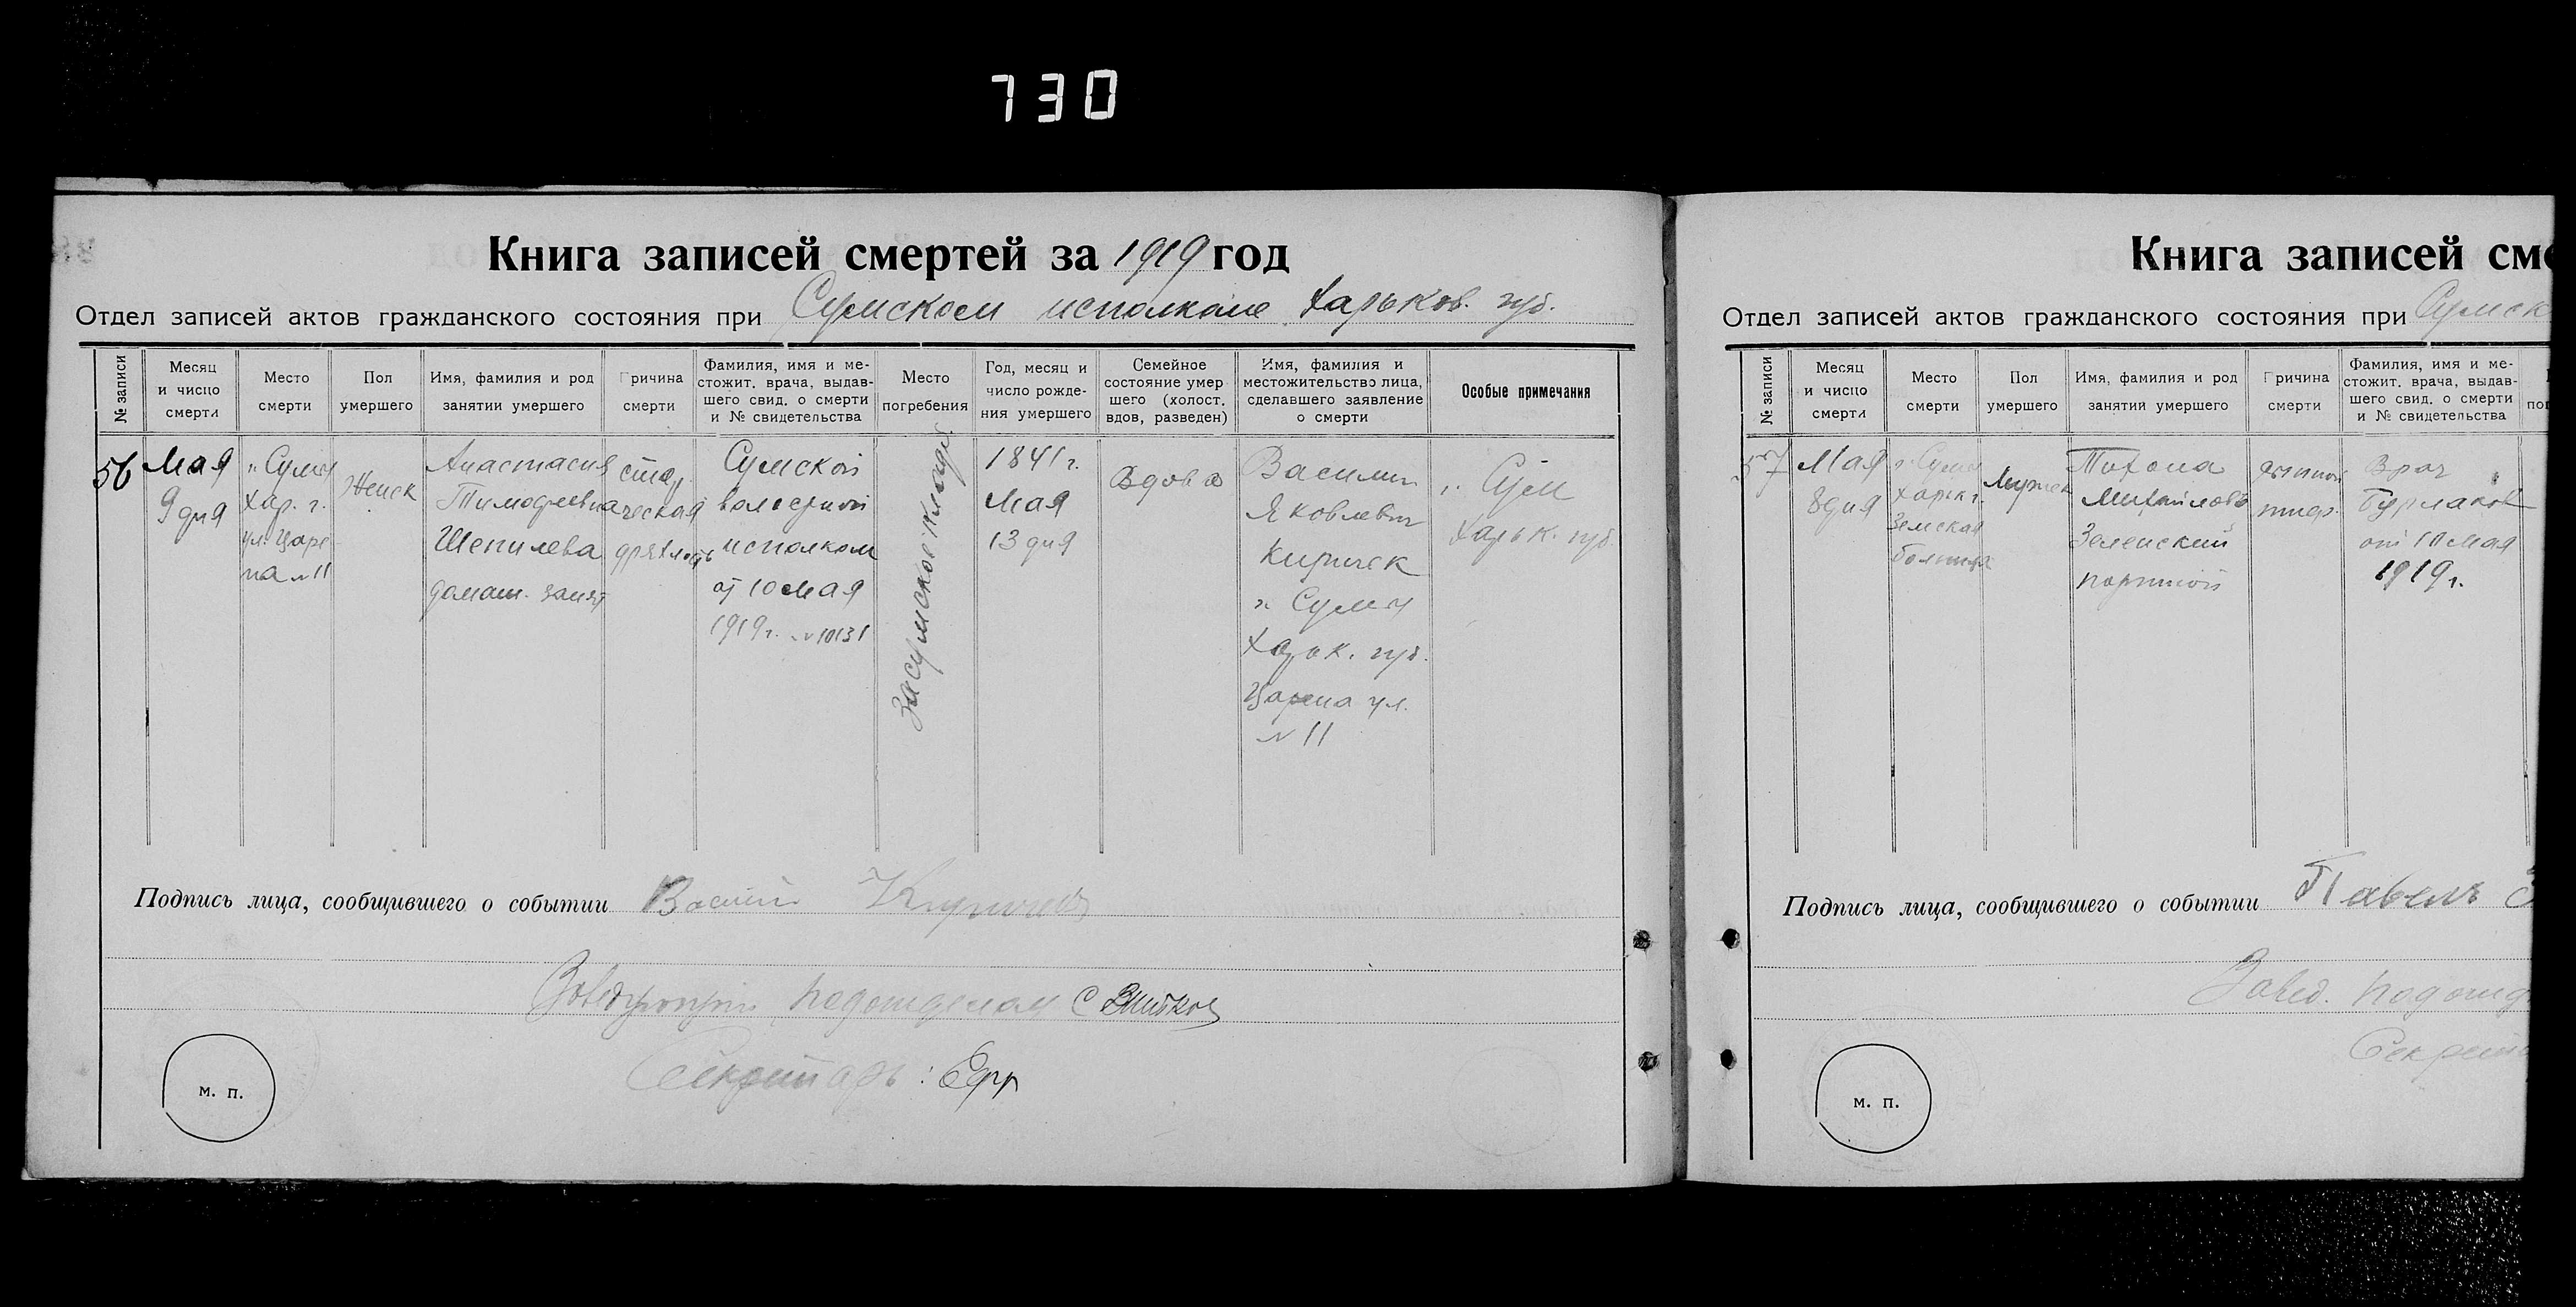 730
Книга записей смертей за 1919 год
Отдел записей актов гражданского состояния при Сумском исполкоме Харьков. губ.
№ записи
Месяц
и число
смерти
Место
смерти
Пол
умершего
Имя, фамилия и род
занятии умершего
Причина
смерти
Фамилия, имя и ме-
стожит. врача, выдав-
шего свид. о смерти
и № свидетельства
Место
погребения
Год, месяц и
число рожде-
ния умершего
Семейное
состояние умер
шего (холост.
вдов, разведен)
Имя, фамилия и
местожительство лица,
сделавшего заявление
о смерти
Особые примечания
56
Мая
9 дня
г. Сумы
Хар. г.
ул. Царе
на № 11
Женск
Анастасия
Тимофеевна
Шепилева
домаш. занят
стар
ческая
дряхлость
Сумской
волостной
исполком
от 10 мая
1919 г. № 10131
Засумское кладб.
1841 г.
Мая
13 дня
Вдова
Василий
Яковлевич
Киричек
г. Сумы
Харьк. губ.
ул.
№ 11
г. Сум
Харьк. губ.
Подпись лица, сообщившего о событии Василий
Заведующий подотделом
Секретарь:
м. п.
Книга записей сме
Отдел записей актов гражданского состояния при Сумск
№ записи
Месяц
и число
смерти
Место
смерти
Пол
умершего
Имя, фамилия и род
занятий умершего
Причина
смерти
Фамилия, имя и ме-
стожит. врача, выдав-
шего свид. о смерти
и № свидетельства
пог
57
Мая
8 дня
г. Сумы
Харьк г.
Земская
больница
Мужск
Тихона
Михайловъ
Зеленский
портной
тиф.
Врач
Бурлаков
от 10 мая
1919 г.
Подпись лица, сообщившего о событии Павелъ З
Завед. подотд
Секрет
м. п.